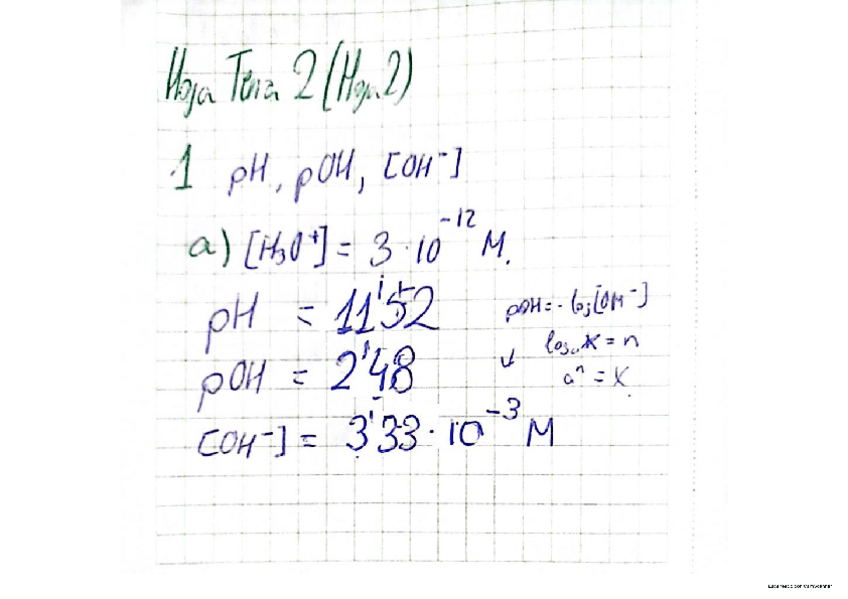 Hoja Tema 2 (Hoja 2)
1 pH, pOH, [OH⁻]
a) [H₃O⁺] = 3·10⁻¹² M.
pH = 11'52
pOH = -log[OH⁻]
pOH = 2'48
logₐ x = n
↓ aⁿ = x
[OH⁻] = 3'33·10⁻³ M